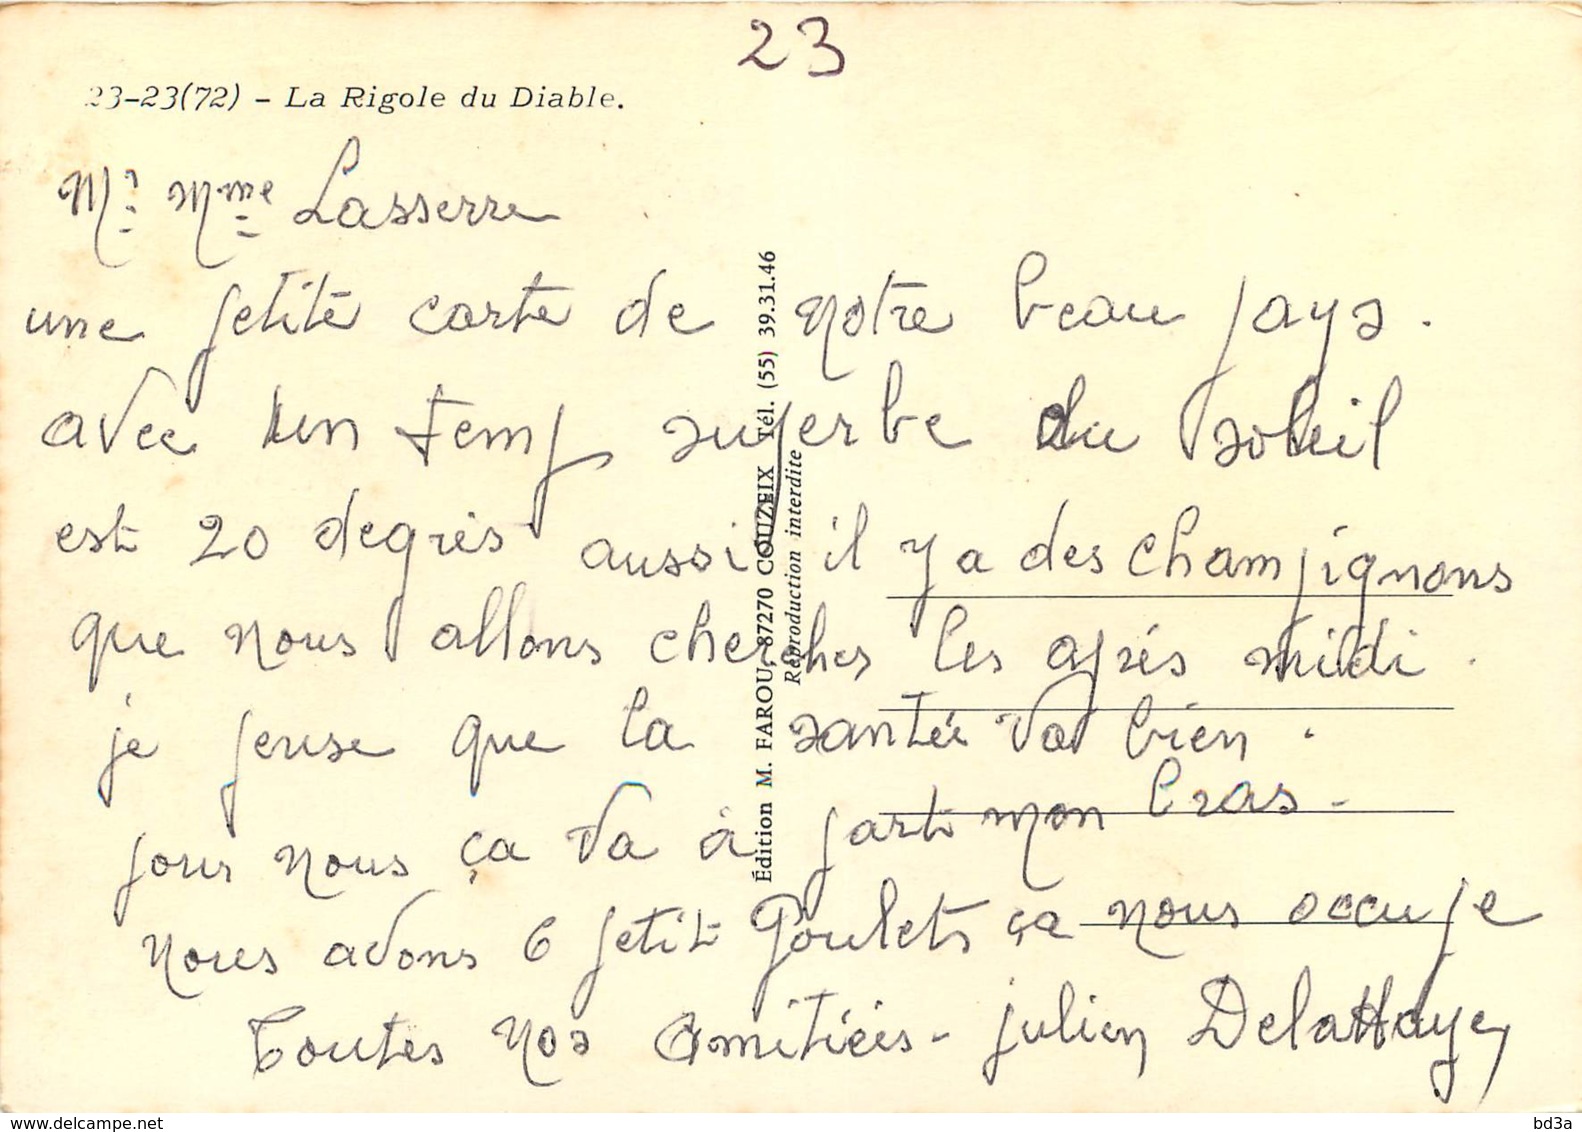 23
23-23(72) - La Rigole du Diable.
Mr Mme Lasserre
une petite carte de notre beau pays.
avec un temp superbe du soleil
est 20 degrés aussi il y a des champignons
que nous allons chercher les après midi.
je pense que la santée va bien.
pour nous ça va à part mon bras-
nous avons 6 petit Poulets ça nous occupe
Toutes nos Amitiées - julien Delattaye
Édition M. FAROU, 87270 COUZEIX Tél. (55) 39.31.46
Reproduction interdite
www.delcampe.net
bd3a